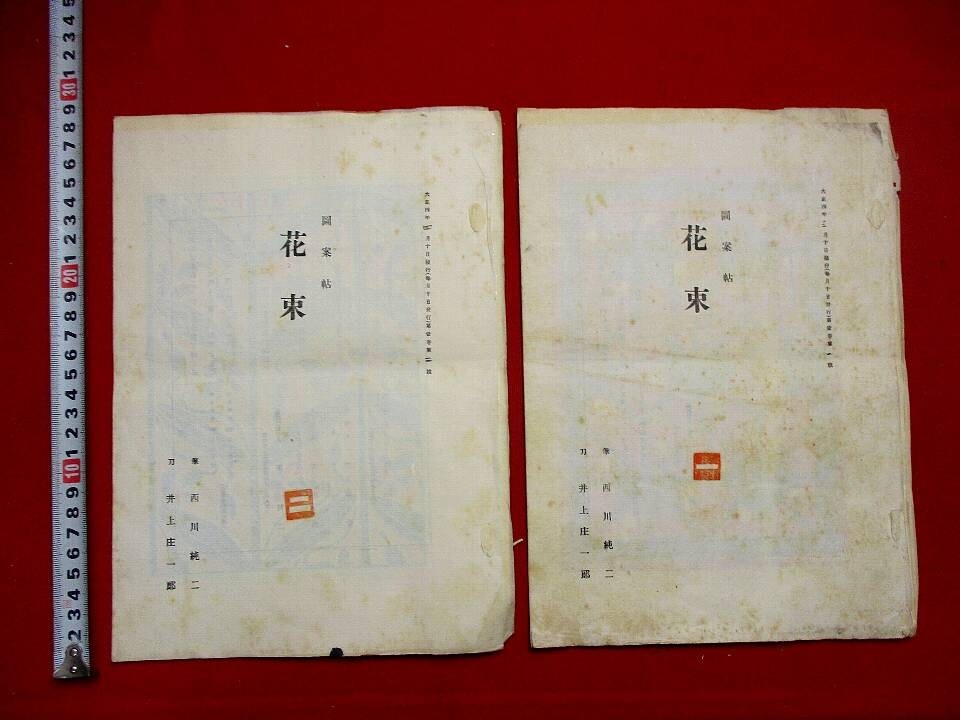 大正四年三月十日發行(毎月十日發行)第壹卷第二號
圖案帖
花束
二
筆 西川純二
刀 井上庄一郎
大正四年二月十日發行(毎月十日發行)第壹卷第一號
圖案帖
花束
一
筆 西川純二
刀 井上庄一郎
5
4
3
2
1
30
9
8
7
6
5
4
3
2
1
20
9
8
7
6
5
4
3
2
1
10
9
8
7
6
5
4
3
2